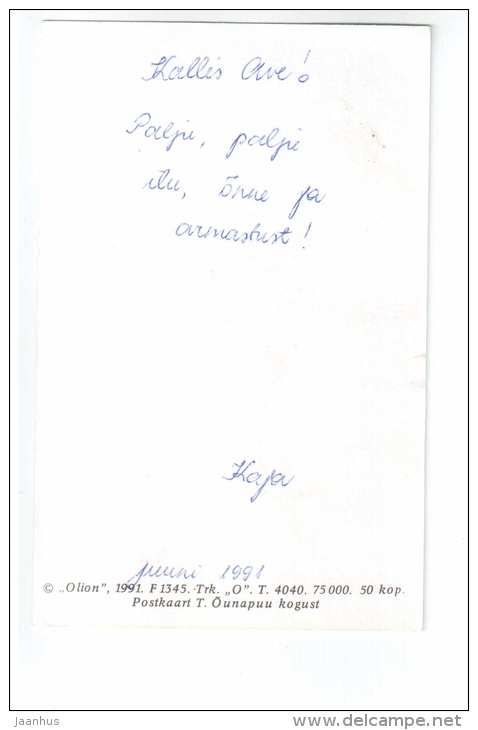 Kallis Ave!
Palju, palju
ilu, õnne ja
armastust!
Kaja
juuni 1991
© „Olion", 1991. F 1345. Trk. „O". T. 4040. 75 000. 50 kop.
Postkaart T. Õunapuu kogust
jaanhus
www.delcampe.net